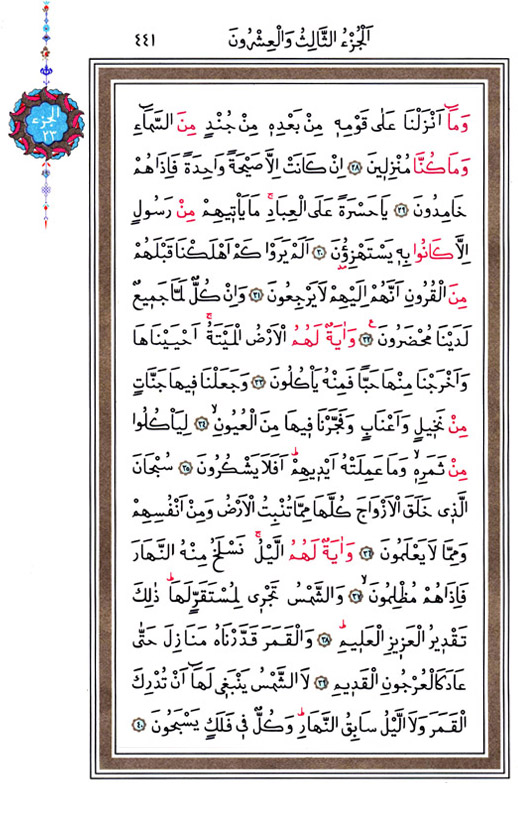 اَلْجُزْءُ الثَّالِثُ وَالْعِشْرُونَ
٤٤١
الجزء
٢٣
وَمَٓا اَنْزَلْنَا عَلٰى قَوْمِه۪ مِنْ بَعْدِه۪ مِنْ جُنْدٍ مِنَ السَّمَٓاءِ
وَمَا كُنَّا مُنْزِل۪ينَ ﴿٢٨﴾ اِنْ كَانَتْ اِلَّا صَيْحَةً وَاحِدَةً فَاِذَا هُمْ
خَامِدُونَ ﴿٢٩﴾ يَا حَسْرَةً عَلَى الْعِبَادِۚ مَا يَأْت۪يهِمْ مِنْ رَسُولٍ
اِلَّا كَانُوا بِه۪ يَسْتَهْزِؤُ۫نَ ﴿٣٠﴾ اَلَمْ يَرَوْا كَمْ اَهْلَكْنَا قَبْلَهُمْ
مِنَ الْقُرُونِ اَنَّهُمْ اِلَيْهِمْ لَا يَرْجِعُونَ ﴿٣١﴾ وَاِنْ كُلٌّ لَمَّا جَم۪يعٌ
لَدَيْنَا مُحْضَرُونَ۟ ﴿٣٢﴾ وَاٰيَةٌ لَهُمُ الْاَرْضُ الْمَيْتَةُۚ اَحْيَيْنَاهَا
وَاَخْرَجْنَا مِنْهَا حَبًّا فَمِنْهُ يَأْكُلُونَ ﴿٣٣﴾ وَجَعَلْنَا ف۪يهَا جَنَّاتٍ
مِنْ نَخ۪يلٍ وَاَعْنَابٍ وَفَجَّرْنَا ف۪يهَا مِنَ الْعُيُونِۙ ﴿٣٤﴾ لِيَأْكُلُوا
مِنْ ثَمَرِه۪ۙ وَمَا عَمِلَتْهُ اَيْد۪يهِمْۜ اَفَلَا يَشْكُرُونَ ﴿٣٥﴾ سُبْحَانَ
الَّذ۪ي خَلَقَ الْاَزْوَاجَ كُلَّهَا مِمَّا تُنْبِتُ الْاَرْضُ وَمِنْ اَنْفُسِهِمْ
وَمِمَّا لَا يَعْلَمُونَ ﴿٣٦﴾ وَاٰيَةٌ لَهُمُ الَّيْلُۚ نَسْلَخُ مِنْهُ النَّهَارَ
فَاِذَا هُمْ مُظْلِمُونَۙ ﴿٣٧﴾ وَالشَّمْسُ تَجْر۪ي لِمُسْتَقَرٍّ لَهَاۜ ذٰلِكَ
تَقْد۪يرُ الْعَز۪يزِ الْعَل۪يمِۜ ﴿٣٨﴾ وَالْقَمَرَ قَدَّرْنَاهُ مَنَازِلَ حَتّٰى
عَادَ كَالْعُرْجُونِ الْقَد۪يمِ ﴿٣٩﴾ لَا الشَّمْسُ يَنْبَغ۪ي لَهَٓا اَنْ تُدْرِكَ
الْقَمَرَ وَلَا الَّيْلُ سَابِقُ النَّهَارِۜ وَكُلٌّ ف۪ي فَلَكٍ يَسْبَحُونَ ﴿٤٠﴾